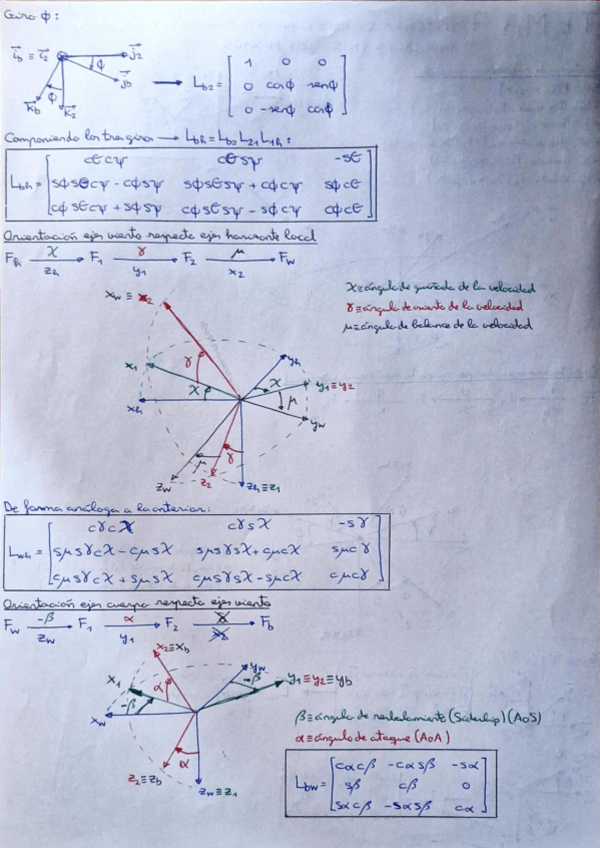 Giro ϕ:
i⃗b ≡ i⃗2
j⃗2
ϕ
j⃗b
k⃗b
ϕ
k⃗2
Lb2 = [ 1 0 0
0 cosϕ senϕ
0 -senϕ cosϕ ]
Componiendo los tres giros → Lbh = Lb2 L21 L1h:
Lbh = [ cθcψ cθsψ -sθ
sϕsθcψ - cϕsψ sϕsθsψ + cϕcψ sϕcθ
cϕsθcψ + sϕsψ cϕsθsψ - sϕcψ cϕcθ ]
Orientación ejes viento respecto ejes horizonte local
Fh →(χ, zh) F1 →(γ, y1) F2 →(μ, x2) Fw
χ≡ángulo de guiñada de la velocidad
γ≡ángulo de asiento de la velocidad
μ≡ángulo de balance de la velocidad
xw ≡ x2
x1
γ
yh
χ
y1≡y2
χ
xh
μ
yw
μ
γ
zw
z2
zh≡z1
De forma análoga a la anterior:
Lwh = [ cγcχ cγsχ -sγ
sμsγcχ - cμsχ sμsγsχ + cμcχ sμcγ
cμsγcχ + sμsχ cμsγsχ - sμcχ cμcγ ]
Orientación ejes cuerpo respecto ejes viento
Fw →(-β, zw) F1 →(α, y1) F2 → Fb
x2≡xb
x1
α
yw
-β
y1≡y2≡yb
-β
xw
α
z2≡zb
zw≡z1
β≡ángulo de resbalamiento (Sideslip) (AoS)
α≡ángulo de ataque (AoA)
Lbw = [ cαcβ -cαsβ -sα
sβ cβ 0
sαcβ -sαsβ cα ]